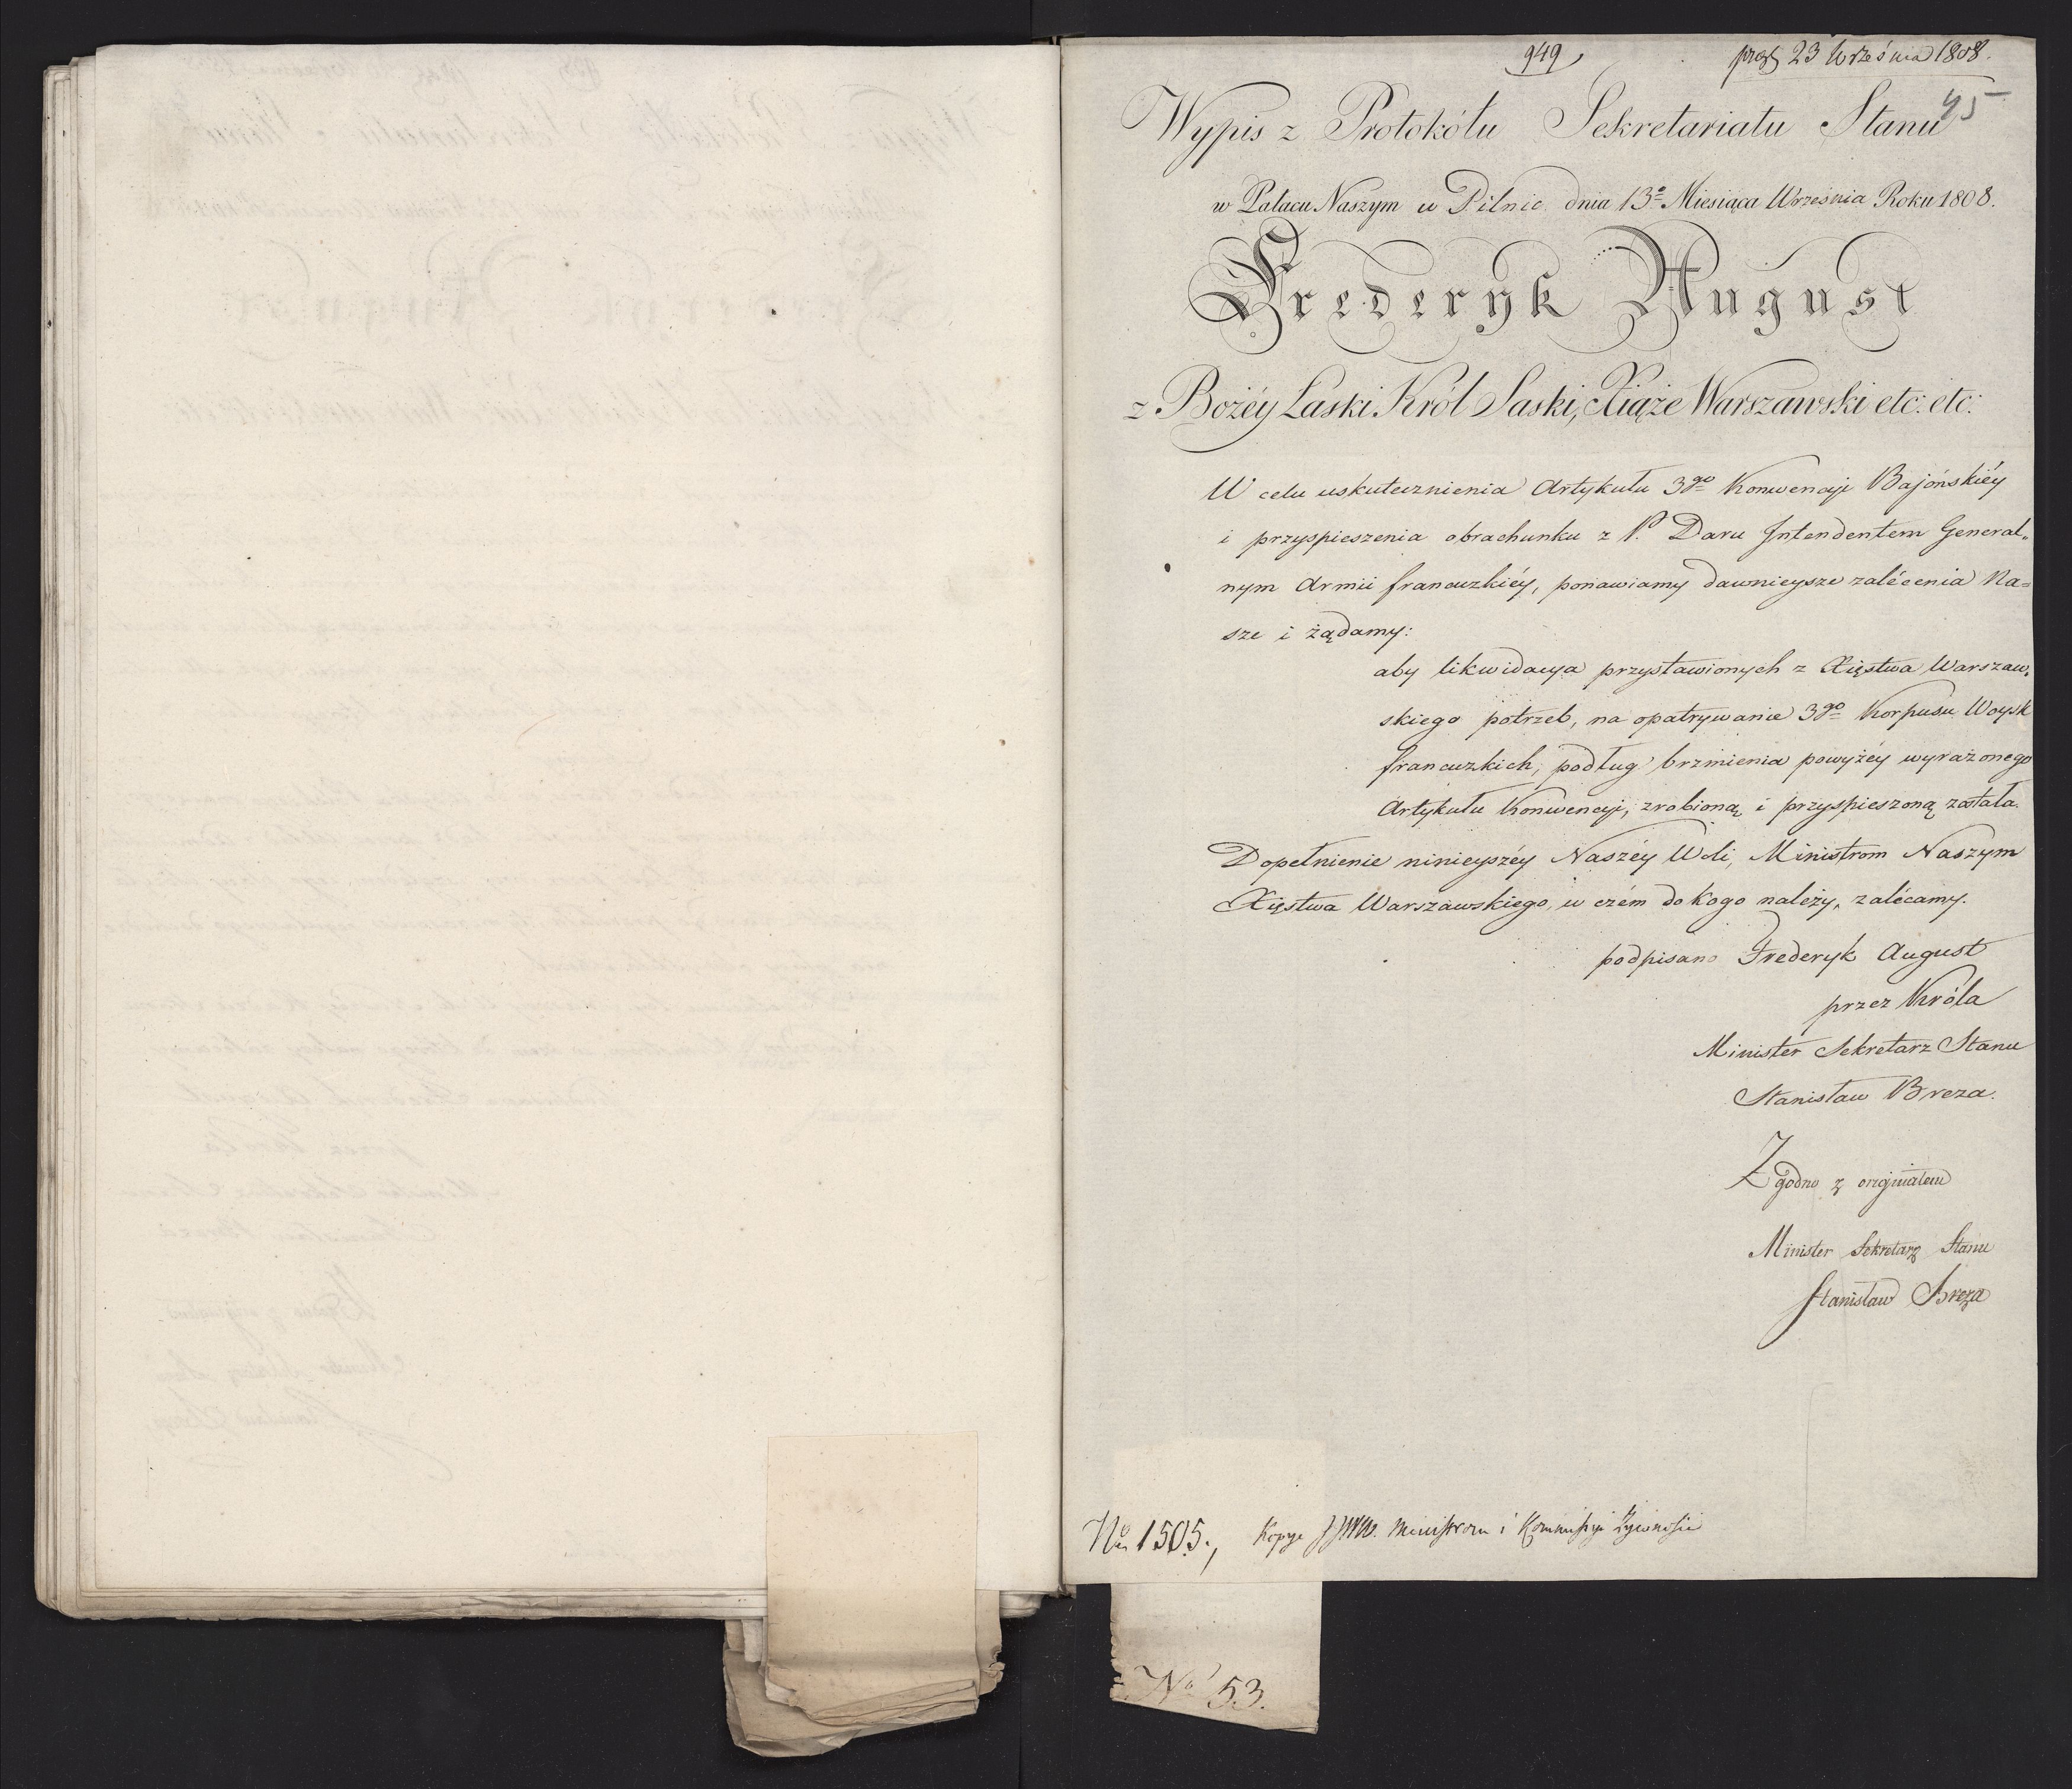 949
45
23 Września 1808.
Wypis z Protokółu Sekretariatu Stanu
w Pałacu Naszym w Pilnic dnia 13º Miesiąca Września Roku 1808.
Frederyk August
z Bożéy Łaski Król Saski, Xiąże Warszawski etc: etc:
W celu uskutecznienia Artykułu 3go Konwencyi Bajońskiéy
i przyspieszenia obrachunku z P. Daru Intendentem General„
nym Armii francuzkiéy, ponawiamy dawnieysze zalécenia Na=
sze i żądamy:
aby likwidacya przystawionych z Xięstwa Warszaw„
skiego potrzeb, na opatrywanie 3go Korpusu Woysk
francuzkich, podług brzmienia powyżéy wyrażonego
Artykułu Konwencyi, zrobioną i przyspieszoną została.
Dopełnienie ninieyszéy Naszéy Woli, Ministrom Naszym
Xięstwa Warszawskiego, w czém do kogo należy, zalécamy.
podpisano Frederyk August
przez Króla
Minister Sekretarz Stanu
Stanisław Breza.
Zgodno z originałem
Minister Sekretarz Stanu
Stanisław Breza
No 1505., Kopye JJWW. Ministrom i Kommissyi Żywności
No 53.